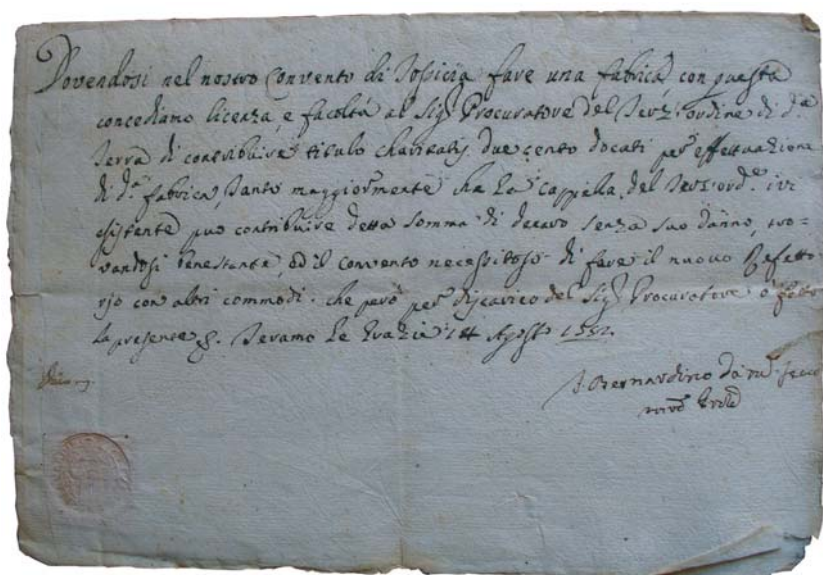 Dovendosi nel nostro Convento di Tossicia fare una fabrica, con questa
concediamo licenza, e facoltà al Sig.r Procuratore del Terz: ordine di d.a
Terra di contribuire titulo charitatis due cento docati per effettuazione
di d.a fabrica, tanto maggiormente che la Cappella del Terz: ord.e ivi
esistente può contribuire detta somma di denaro senza suo danno, tro=
vandosi benestante, ed il convento necessitoso di fare il nuovo Refetto=
rio con altri commodi. che però per discarico del Sig.r Procuratore ò fatto
la presente. Teramo Le Grazie 14 Agosto
F. Bernardino da